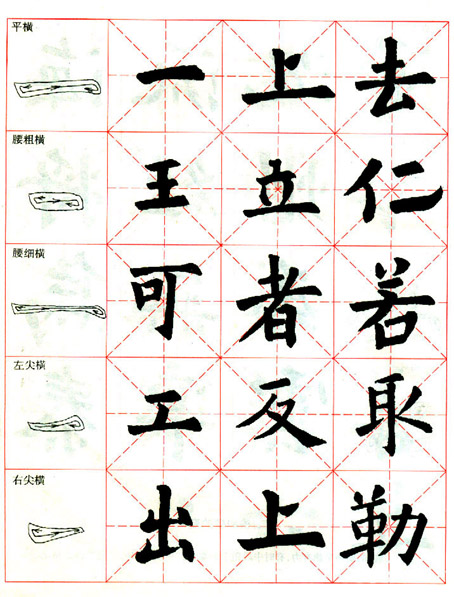 平横 一 上 去
腰粗横 王 立 仁
腰细横 可 者 若
左尖横 工 反 取
右尖横 出 上 勒